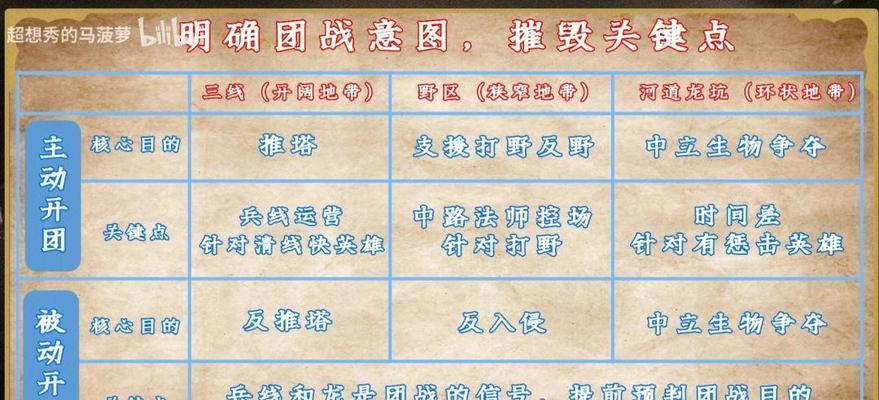 超想秀的马菠萝 bilibili
明确团战意图，摧毁关键点
三线（开阔地带） 野区（狭窄地带） 河道龙坑（环状地带）
主动开团
核心目的 推塔 支援打野反野 中立生物争夺
关键点 兵线运营 中路法师控场 时间差
针对清线快英雄 针对打野 针对有惩击英雄
被动开
核心目的 反推塔 反入侵 中立生物争夺
关键点 兵线和龙是团战的信号，提前预判团战目的